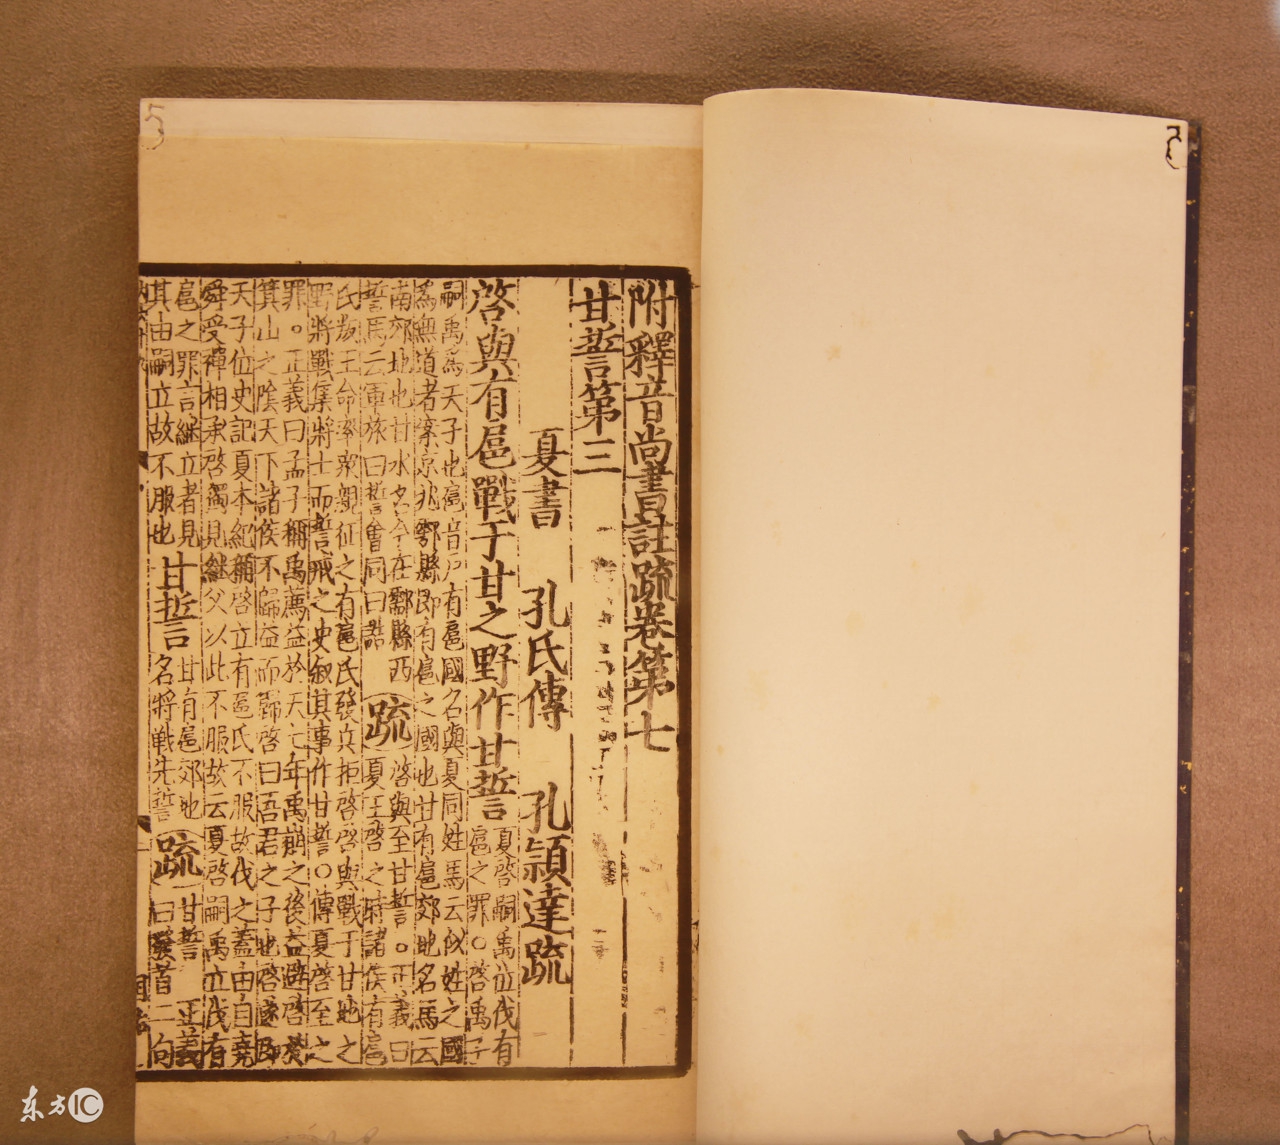 附釋音尚書註疏卷第七
甘誓第三
夏書 孔氏傳 孔穎達疏
啓與有扈戰于甘之野作甘誓 夏啓嗣禹位伐有
扈之罪○啓禹子
嗣禹為天子也扈音戶有扈國名與夏同姓馬云姒姓之國
為無道者案京兆鄠縣即有扈之國也甘有扈郊地名馬云
南郊地也甘水名今在鄠縣西
誓馬云軍旅曰誓會同曰誥
疏
啓與至甘誓○正義曰
夏王啓之時諸侯有扈
氏叛王命率衆親征之有扈氏發兵拒啓啓與戰于甘地之
野將戰集將士而誓戒之史叙其事作甘誓○傳夏啓至之
罪○正義曰孟子稱禹薦益於天七年禹崩之後益避啓於
箕山之陰天下諸侯不歸益而歸啓曰吾君之子也啓遂即
天子位史記夏本紀稱啓立有扈氏不服故伐之蓋由自堯
舜受禪相承啓獨見繼父以此不服故云夏啓嗣禹立伐有
扈之罪言繼立者見
其由嗣立故不服也
甘誓
甘有扈郊地
名將戰先誓
疏
甘誓 正義
曰發首二句
东方IC